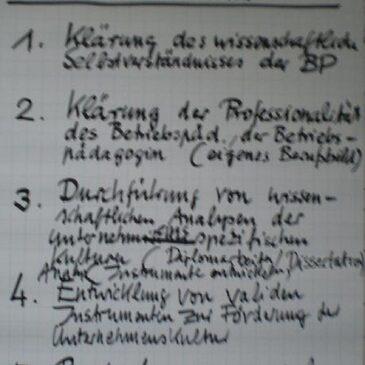 1. Klärung des wissenschaftliche
Selbstverständnisses der BP
2. Klärung der Professionalität
des Betriebspäd. der Betriebs-
pädagogin (eigenes Berufsbild)
3. Durchführung von wissen-
schaftlichen Analysen der
unternehmensspezifischen
Kulturen (Diplomarbeiten/Dissertation)
Instrumente entwickeln,
4. Entwicklung von validen
Instrumenten zur Förderung der
Unternehmenskultur